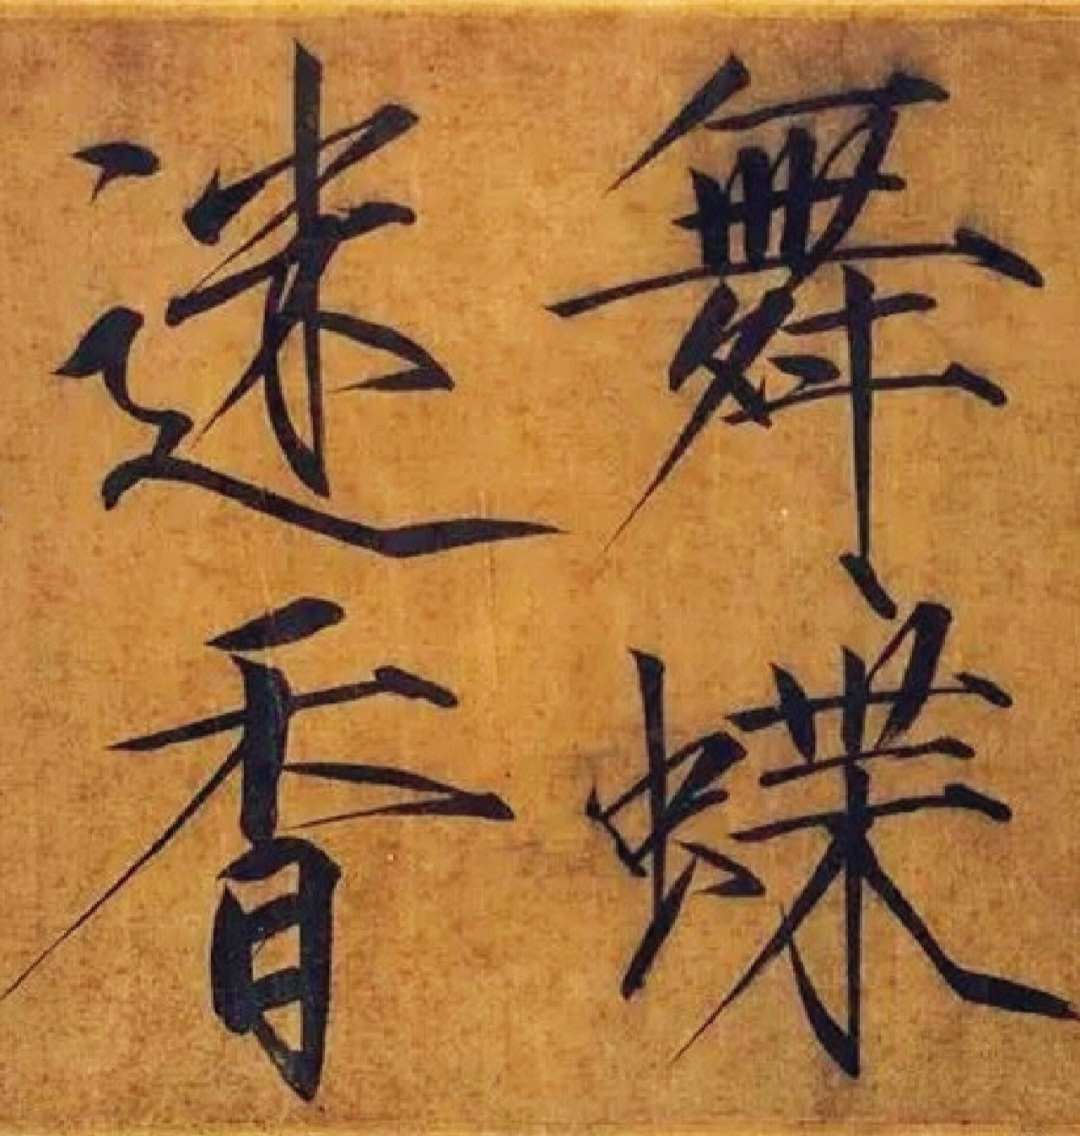 舞蝶
迷香